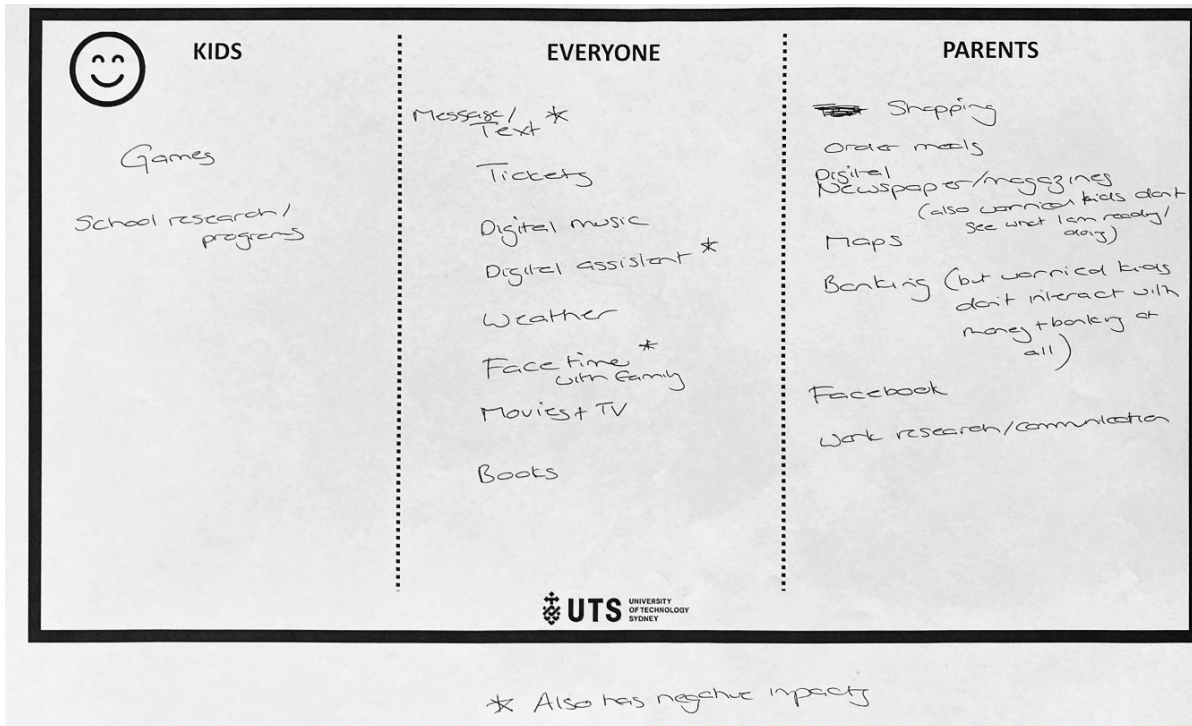 KIDS
Games
School research/
programs
EVERYONE
Message/
Text *
Tickets
Digital music
Digital assistant *
Weather
Facetime *
with family
Movies + TV
Books
PARENTS
Shopping
Order meals
Digital
Newspaper/magazines
(also worried kids don't
see what I am ready/
doing)
Maps
Banking (but worried kids
don't interact with
money + banking at
all)
Facebook
Work research/communication
UTS
UNIVERSITY
OF TECHNOLOGY
SYDNEY
* Also has negative impacts